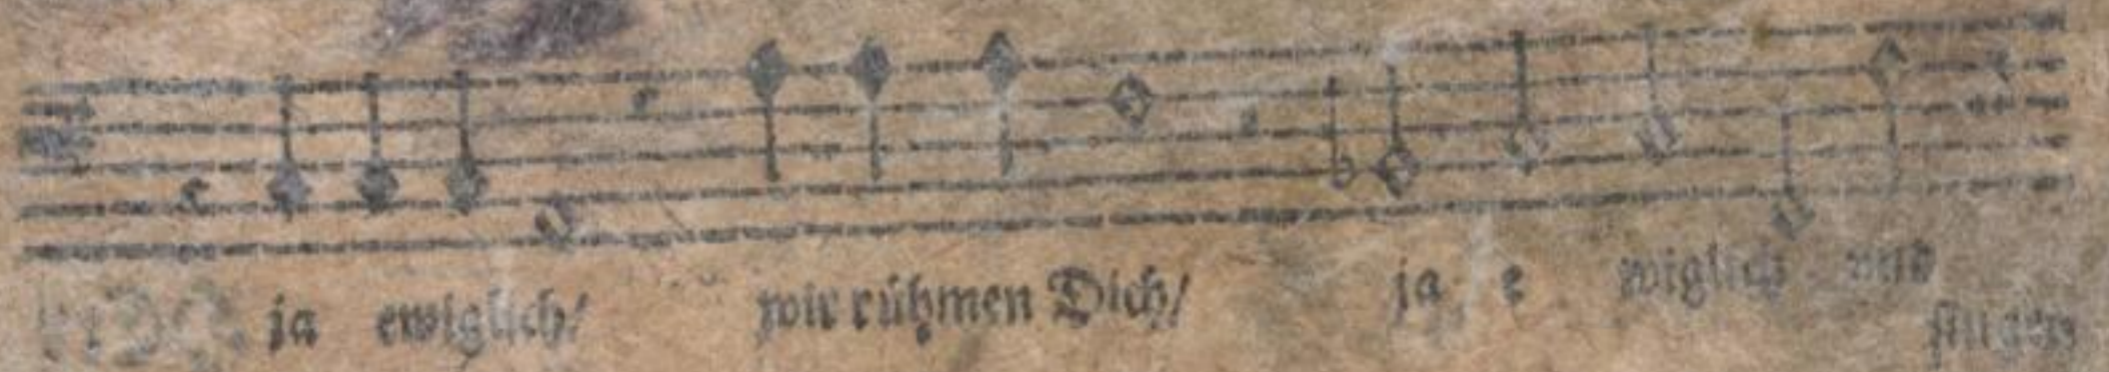 ja ewiglich/ wir rühmen Dich/ ja e wiglich mit
singen